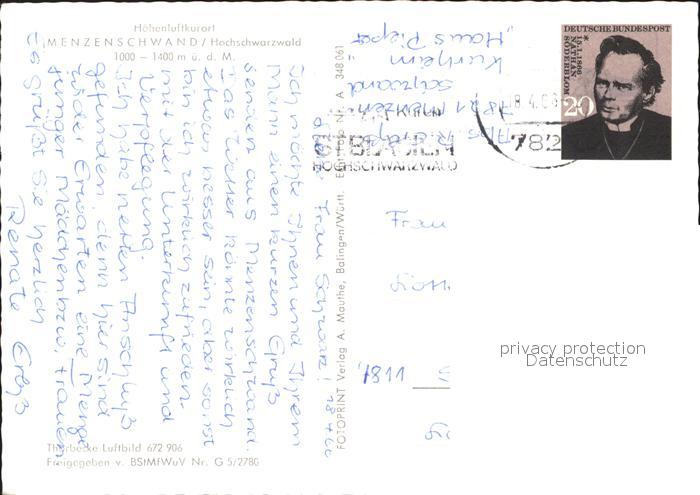 Höhenluftkurort
MENZENSCHWAND / Hochschwarzwald
1000 – 1400 m ü. d. M.
Abs. R.
7821 Menzen-
schwand
Kurheim
"Haus Pieper"
18.4.66
Liebe Frau Schwarz!
Ich möchte Ihnen und Ihrem
Mann einen kurzen Gruß
senden aus Menzenschwand.
Das Wetter könnte wirklich
etwas besser sein, aber sonst
bin ich wirklich zufrieden
mit der Unterkunft und
Verpflegung.
Ich habe netten Anschluß
gefunden, denn hier sind
wider Erwarten eine Menge
junger Mädchen bzw. Frauen.
Es grüßt Sie herzlich
Renate
Thorbecke Luftbild 672 906
Freigegeben v. BStMfWuV Nr. G 5/2780
FOTOPRINT Verlag A. Mauthe, Balingen/Württ. Echt Foto Nr. A 348 061
ST. BLASIEN
HOCHSCHWARZWALD
782
DEUTSCHE BUNDESPOST
* 15.1.1866
NATHAN
SÖDERBLOM
20
Frau
7811
privacy protection
Datenschutz